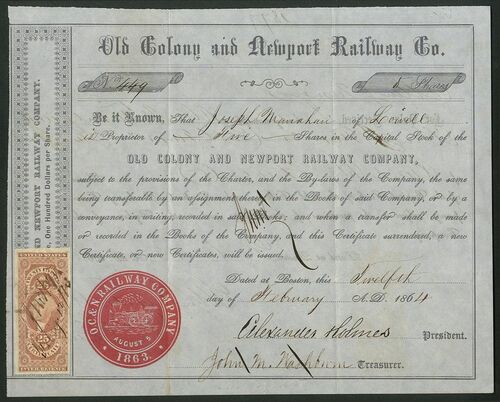 Old Colony and Newport Railway Co.
No. 449
5 Shares
Be it Known, That Joseph Manahan of Lowell
is Proprietor of Five Shares in the Capital Stock of the
OLD COLONY AND NEWPORT RAILWAY COMPANY,
subject to the provisions of the Charter, and the By-laws of the Company, the same
being transferable by an assignment thereof in the Books of said Company, or by a
conveyance, in writing, recorded in said Books; and when a transfer shall be made
or recorded in the Books of the Company, and this Certificate surrendered, a new
Certificate, or new Certificates, will be issued.
Dated at Boston, this Twelfth
day of February A.D. 1864
Alexander Holmes
President.
John M. Washburn Treasurer.
O.C.& N. RAILWAY COMPANY
AUGUST 5
1863.
NEWPORT RAILWAY COMPANY.
One Hundred Dollars per Share.
25